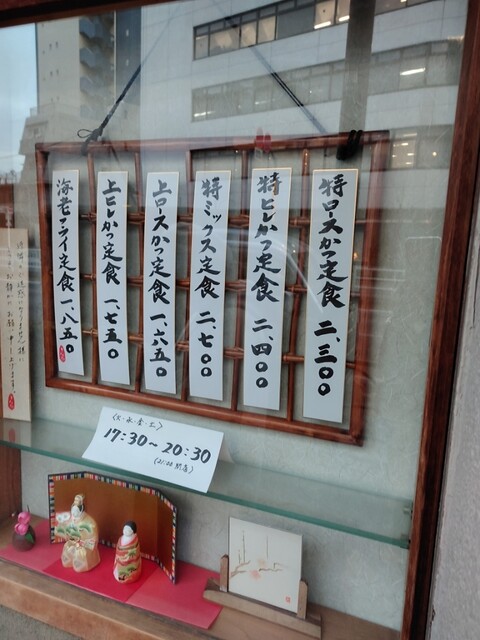 特ロースかつ定食 二、三〇〇
特ヒレかつ定食 二、四〇〇
特ミックス定食 二、七〇〇
上ロースかつ定食 一、六五〇
上ヒレかつ定食 一、七五〇
海老フライ定食 一、八五〇
17:30〜20:30
(21:00 閉店)